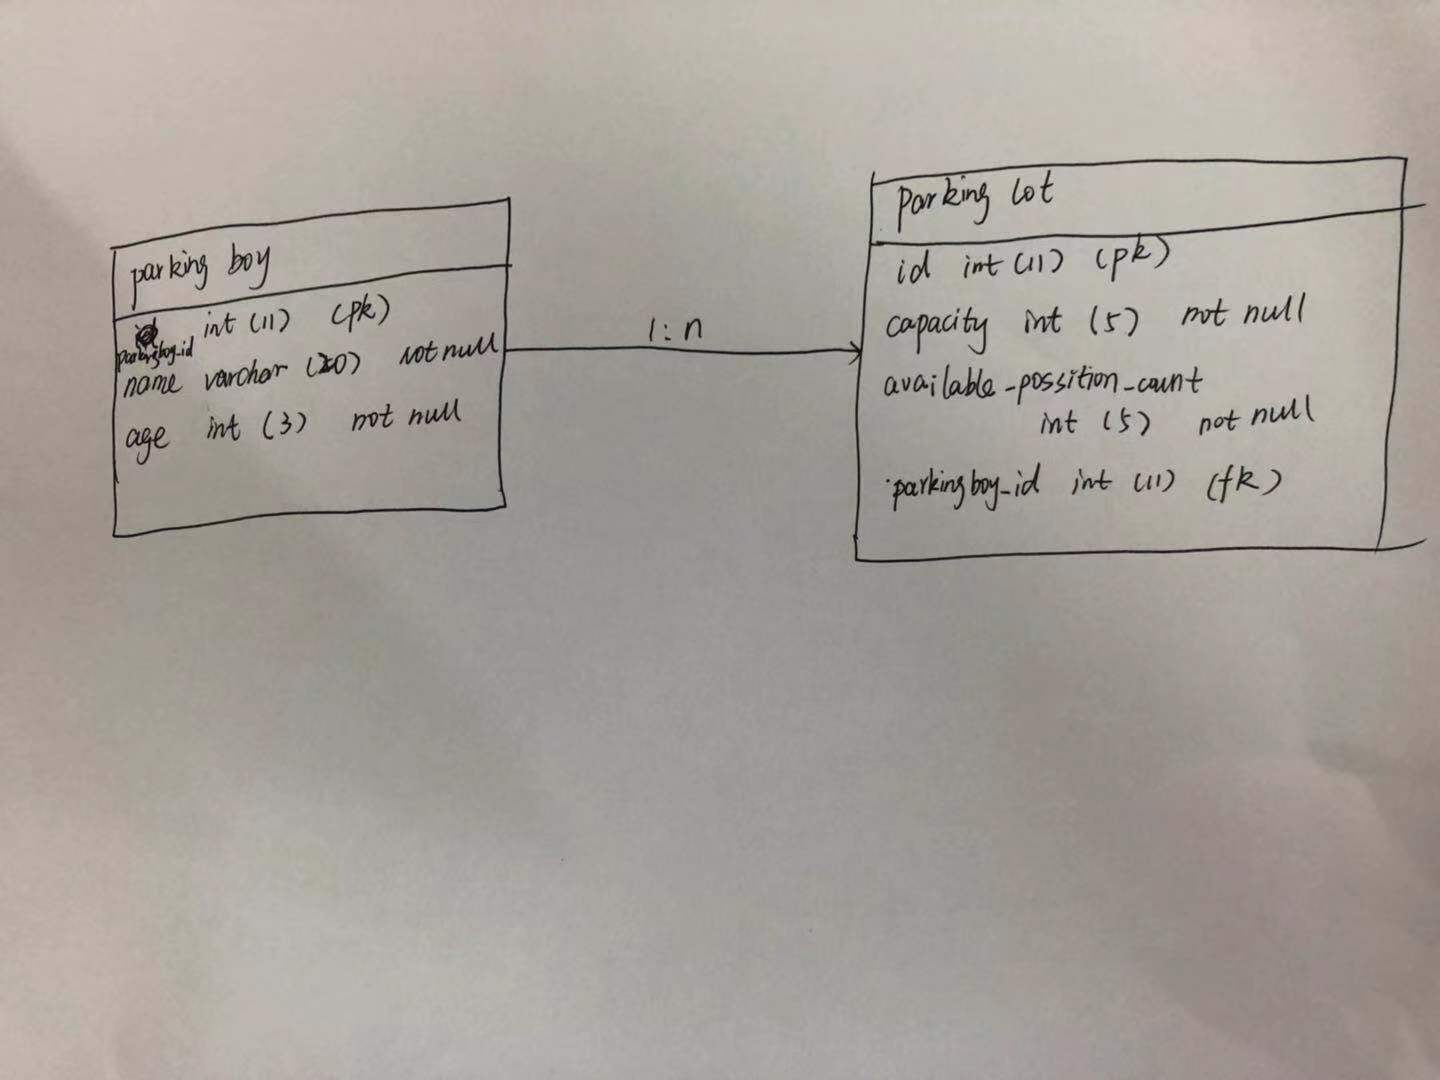 parking boy
int (11) (pk)
parkingboy_id
name varchar (20) not null
age int (3) not null
1:n
Parking lot
id int (11) (pk)
capacity int (5) not null
available_possition_count
int (5) not null
parkingboy_id int (11) (fk)